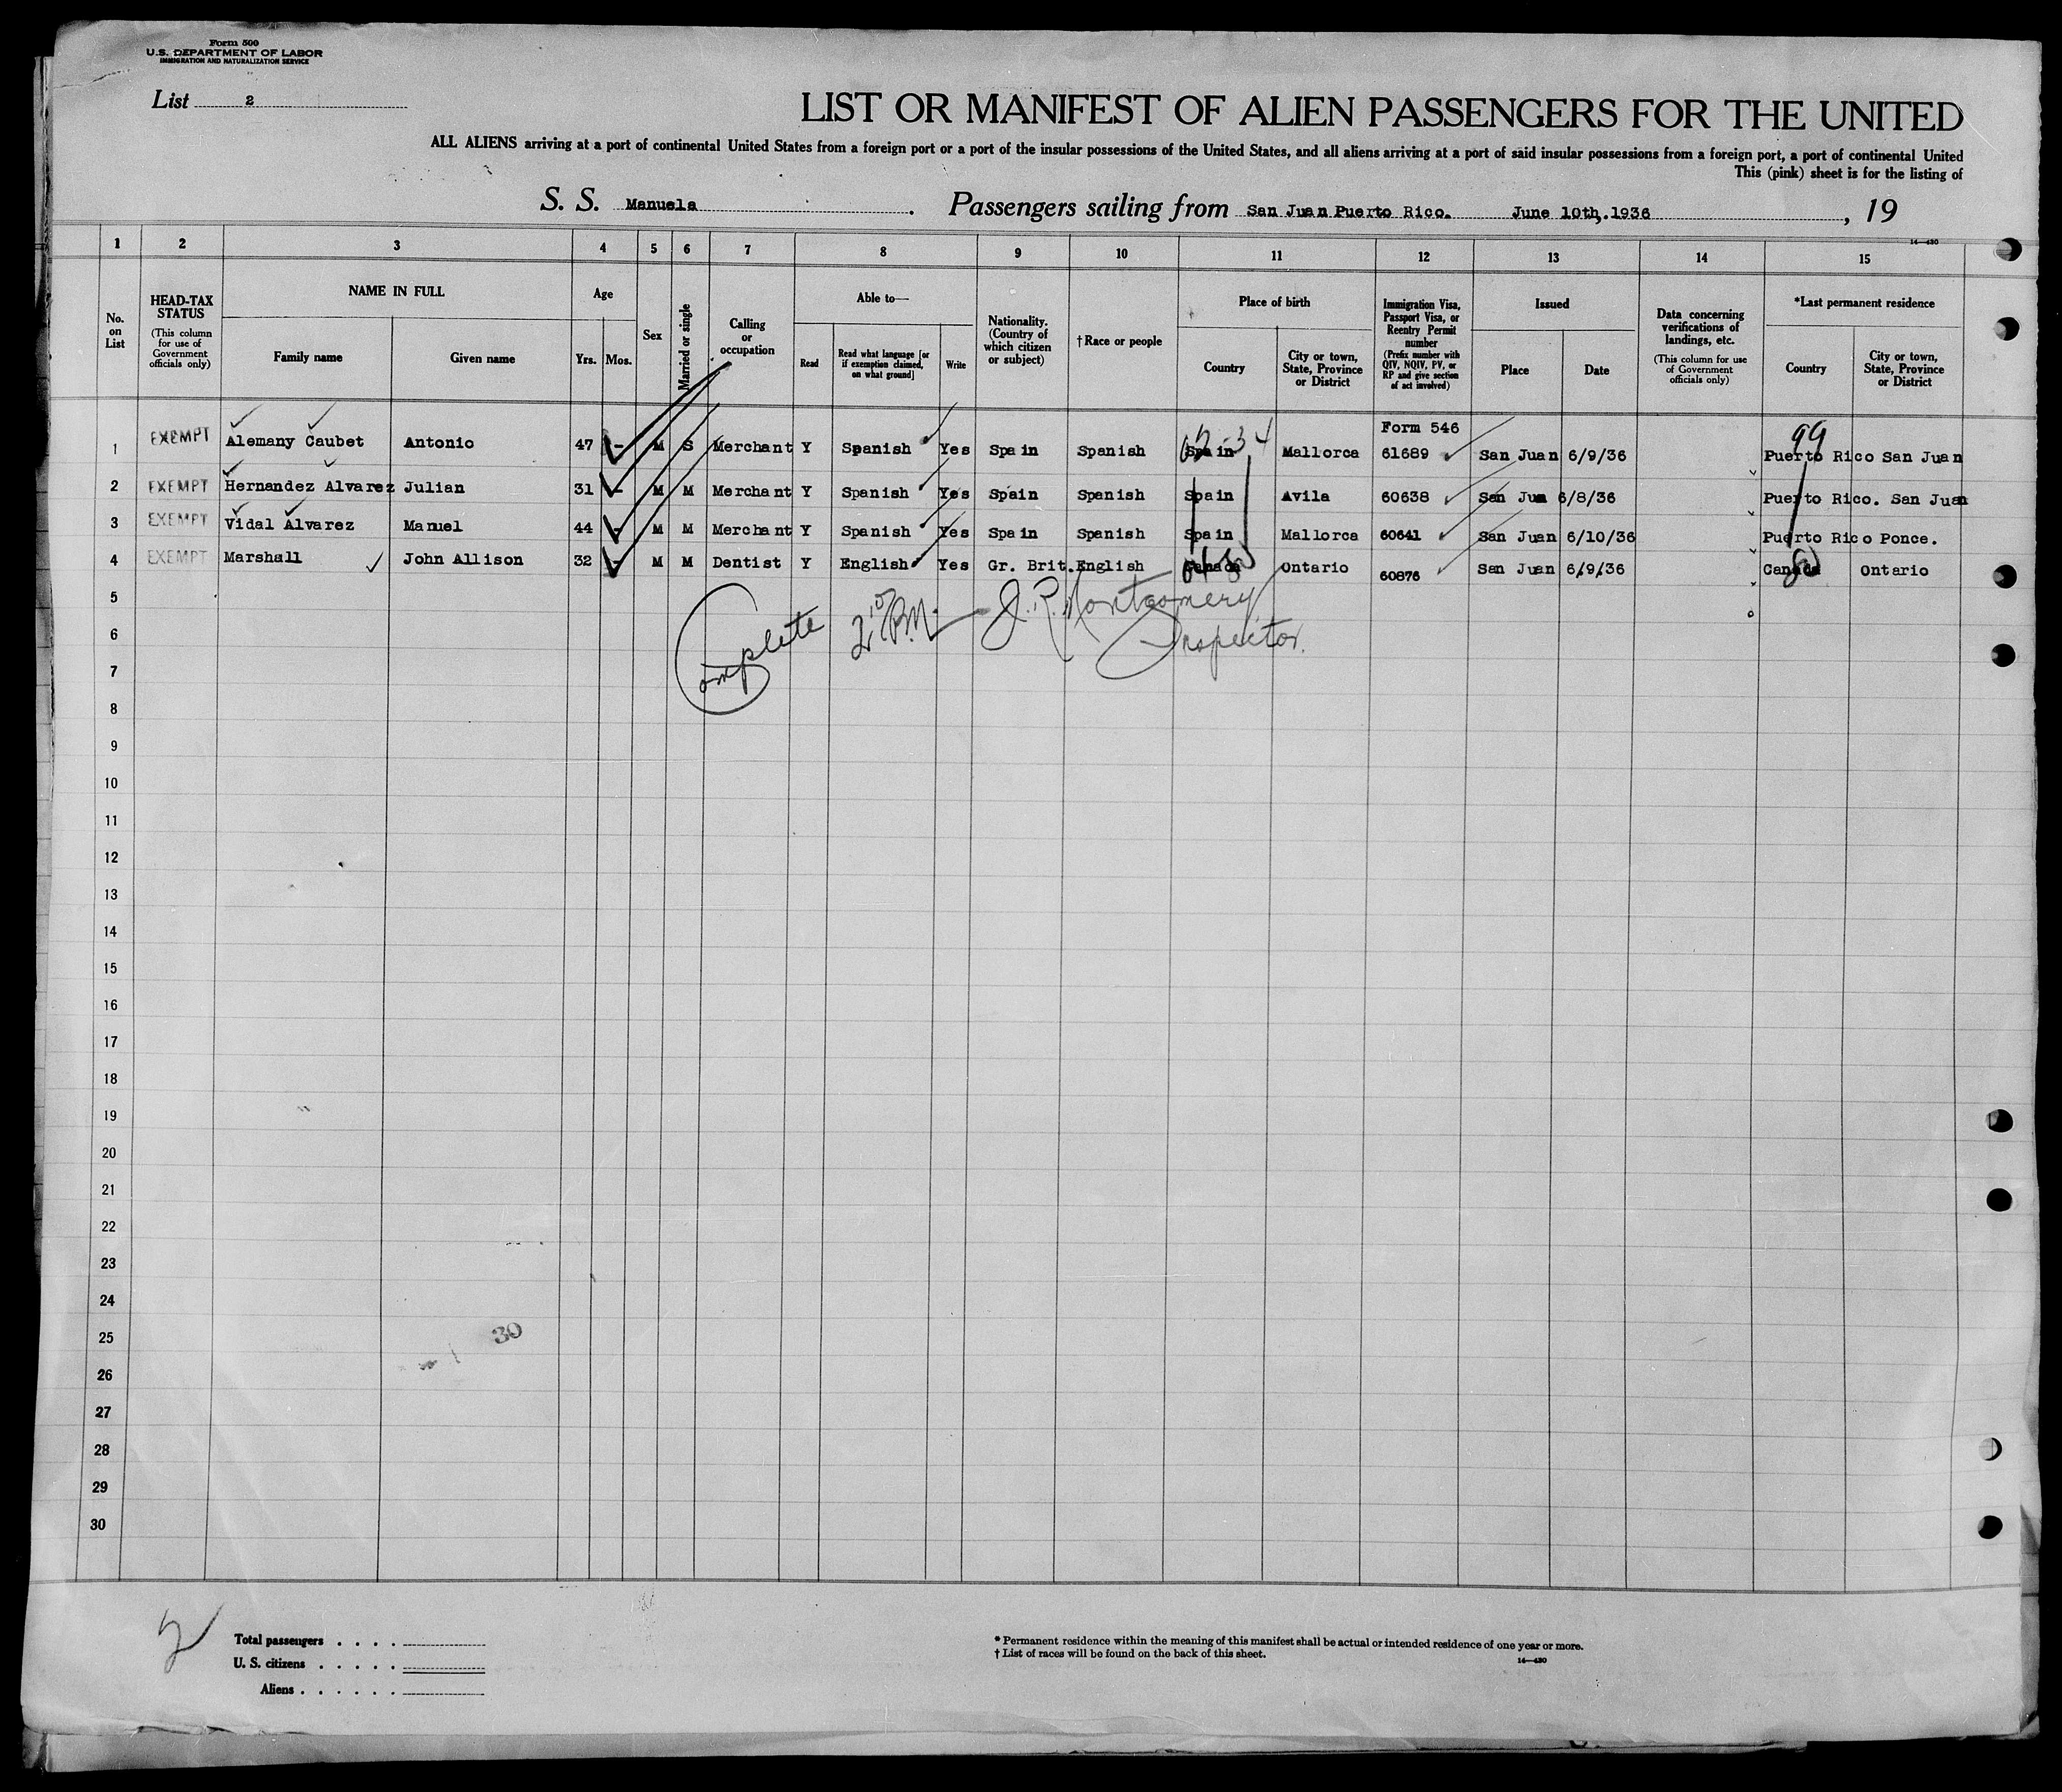 Form 500
U.S. DEPARTMENT OF LABOR
IMMIGRATION AND NATURALIZATION SERVICE
List 2
LIST OR MANIFEST OF ALIEN PASSENGERS FOR THE UNITED
ALL ALIENS arriving at a port of continental United States from a foreign port or a port of the insular possessions of the United States, and all aliens arriving at a port of said insular possessions from a foreign port, a port of continental United
This (pink) sheet is for the listing of
S. S. Manuela . Passengers sailing from San Juan Puerto Rico. June 10th,.1936 , 19
14—430
1 2 3 4 5 6 7 8 9 10 11 12 13 14 15
No. on List
HEAD-TAX STATUS
(This column for use of Government officials only)
NAME IN FULL
Family name
Given name
Age
Yrs. Mos.
Sex
Married or single
Calling or occupation
Able to—
Read
Read what language [or if exemption claimed, on what ground]
Write
Nationality. (Country of which citizen or subject)
†Race or people
Place of birth
Country
City or town, State, Province or District
Immigration Visa, Passport Visa, or Reentry Permit number
(Prefix number with QIV, NQIV, PV, or RP and give section of act involved)
Issued
Place
Date
Data concerning verifications of landings, etc.
(This column for use of Government officials only)
*Last permanent residence
Country
City or town, State, Province or District
Form 546
99
1 EXEMPT Alemany Caubet Antonio 47 - M S Merchant Y Spanish Yes Spain Spanish Spain Mallorca 61689 San Juan 6/9/36 Puerto Rico San Juan
2 EXEMPT Hernandez Alvarez Julian 31 - M M Merchant Y Spanish Yes Spain Spanish Spain Avila 60638 San Jua 6/8/36 Puerto Rico. San Juan
3 EXEMPT Vidal Alvarez Manuel 44 - M M Merchant Y Spanish Yes Spain Spanish Spain Mallorca 60641 San Juan 6/10/36 Puerto Rico Ponce.
4 EXEMPT Marshall John Allison 32 - M M Dentist Y English Yes Gr. Brit. English Canada Ontario 60876 San Juan 6/9/36 Canada Ontario
5
Complete 2:10 P.M. J. R. Montgomery
Inspector.
6
7
8
9
10
11
12
13
14
15
16
17
18
19
20
21
22
23
24
25
30
26
27
28
29
30
2
Total passengers . . . .
U. S. citizens . . . . .
Aliens . . . . . .
* Permanent residence within the meaning of this manifest shall be actual or intended residence of one year or more.
† List of races will be found on the back of this sheet.
14—430